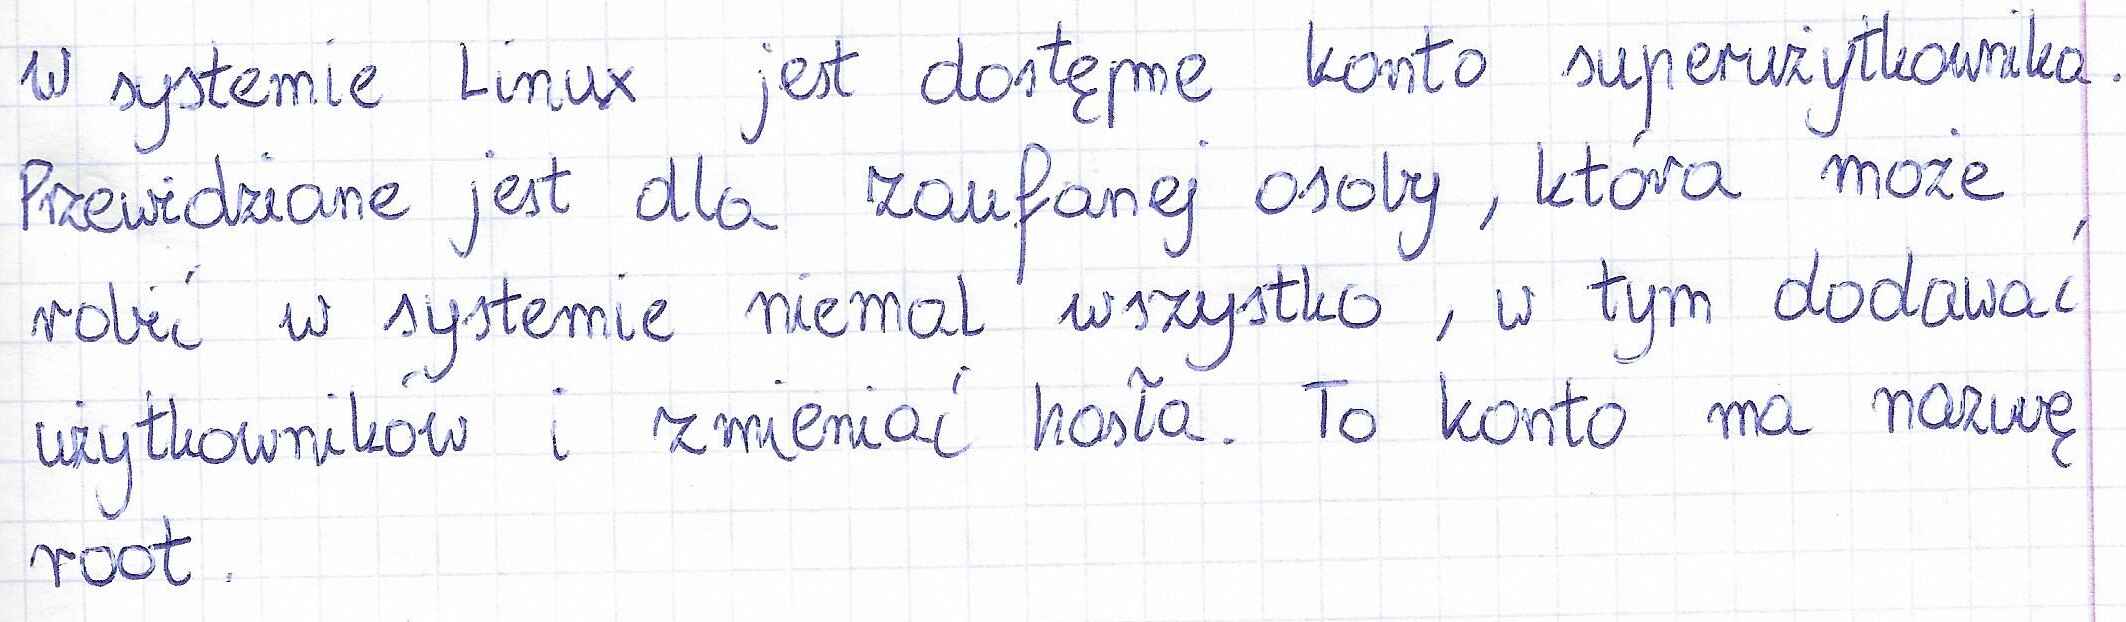 W systemie Linux jest dostępne konto superużytkownika.
Przewidziane jest dla zaufanej osoby, która może
robić w systemie niemal wszystko, w tym dodawać
użytkowników i zmieniać hasła. To konto ma nazwę
root.